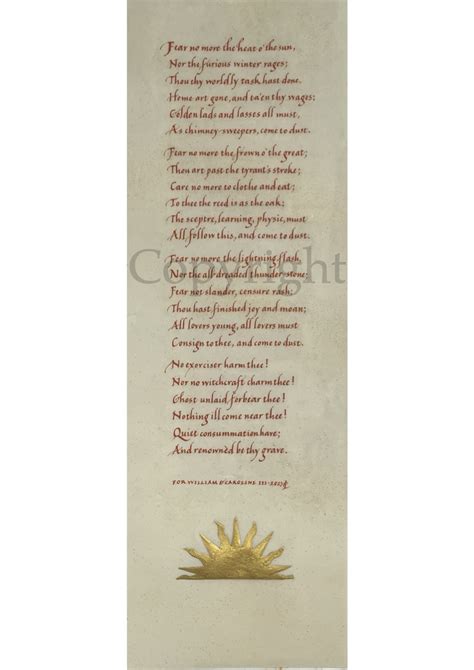 Fear no more the heat o' the sun,
Nor the furious winter rages;
Thou thy worldly task hast done,
Home art gone, and ta'en thy wages:
Golden lads and lasses all must,
As chimney-sweepers, come to dust.
Fear no more the frown o' the great;
Thou art past the tyrant's stroke;
Care no more to clothe and eat;
To thee the reed is as the oak:
The sceptre, learning, physic, must
All follow this, and come to dust.
Fear no more the lightning flash,
Nor the all-dreaded thunder-stone;
Fear not slander, censure rash;
Thou hast finished joy and moan;
All lovers young, all lovers must
Consign to thee, and come to dust.
No exorciser harm thee!
Nor no witchcraft charm thee!
Ghost unlaid, forbear thee!
Nothing ill come near thee!
Quiet consummation have;
And renownèd be thy grave.
FOR WILLIAM
Copyright